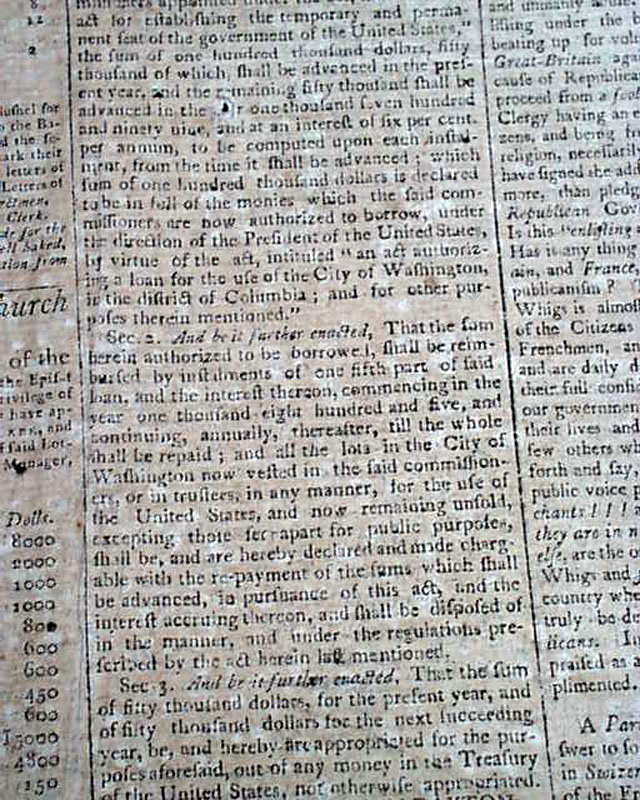 8
12
2
bushel for
letters of
Letters of
Clerk.
ade for the
ell baked,
tion from
hurch
of the
the Epis-
rivilege of
have ap-
f said Lot-
Manager,
Dolls.
8000
2000
1000
1000
800
600
600
450
600
15000
4800
150
act for establishing the temporary and perma-
nent seat of the government of the United States,"
the sum of one hundred thousand dollars, fifty
thousand of which, shall be advanced in the pres-
ent year, and the remaining fifty thousand shall be
advanced in the one thousand seven hundred
and ninety nine, and at an interest of six per cent.
per annum, to be computed upon each instal-
ment, from the time it shall be advanced ; which
sum of one hundred thousand dollars is declared
to be in full of the monies which the said com-
missioners are now authorized to borrow, under
the direction of the President of the United States,
by virtue of the act, intituled "an act authoriz-
ing a loan for the use of the City of Washington,
in the district of Columbia ; and for other pur-
poses therein mentioned."
Sec. 2. And be it further enacted, That the sum
herein authorized to be borrowed, shall be reim-
bursed by instalments of one fifth part of said
loan, and the interest thereon, commencing in the
year one thousand eight hundred and five, and
continuing, annually, thereafter, till the whole
shall be repaid ; and all the lots in the City of
Washington now vested in the said commission-
ers, or in trustees, in any manner, for the use of
the United States, and now remaining unsold,
excepting those set apart for public purposes,
shall be, and are hereby declared and made charg-
able with the re-payment of the sums which shall
be advanced, in pursuance of this act, and the
interest accruing thereon, and shall be disposed of
in the manner, and under the regulations pre-
scribed by the act herein last mentioned.
Sec. 3. And be it further enacted, That the sum
of fifty thousand dollars, for the present year, and
of fifty thousand dollars for the next succeeding
year, be, and hereby are appropriated for the pur-
poses aforesaid, out of any money in the Treasury
of the United States, not otherwise appropriated.
lifting under the
beating up for vol
Great-Britain aga
cause of Republica
proceed from a fool
Clergy having an e
zens, and being fr
religion, necessarily
have signed the ad
more, than pledg
Republican Gov
Is this "enlisting
Has any thing
ain, and France
publicanism ? T
Whigs is almos
of the Citizens
Frenchmen, an
and are daily d
their full confi
our governmen
their lives and
few others wh
forth and say,
public voice
chants ! ! !
they are in n
else, are the o
Whigs and
country whe
truly be de
licans. I
praised as a
plimented.
A Par
swer to so
in Swizer
of the Fr